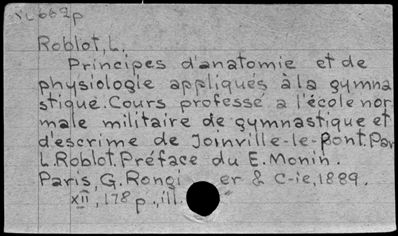 Roblot, L.
Principes d'anatomie et de
physiologie appliqués à la gymna
stique. Cours professé a l'école nor
male militaire de gymnastique et
d'escrime de Joinville-le-pont. Par
L. Roblot, Préface du E. Monin.
Paris, G. Rongi er & C-ie, 1889.
xii, 178 p., ill.